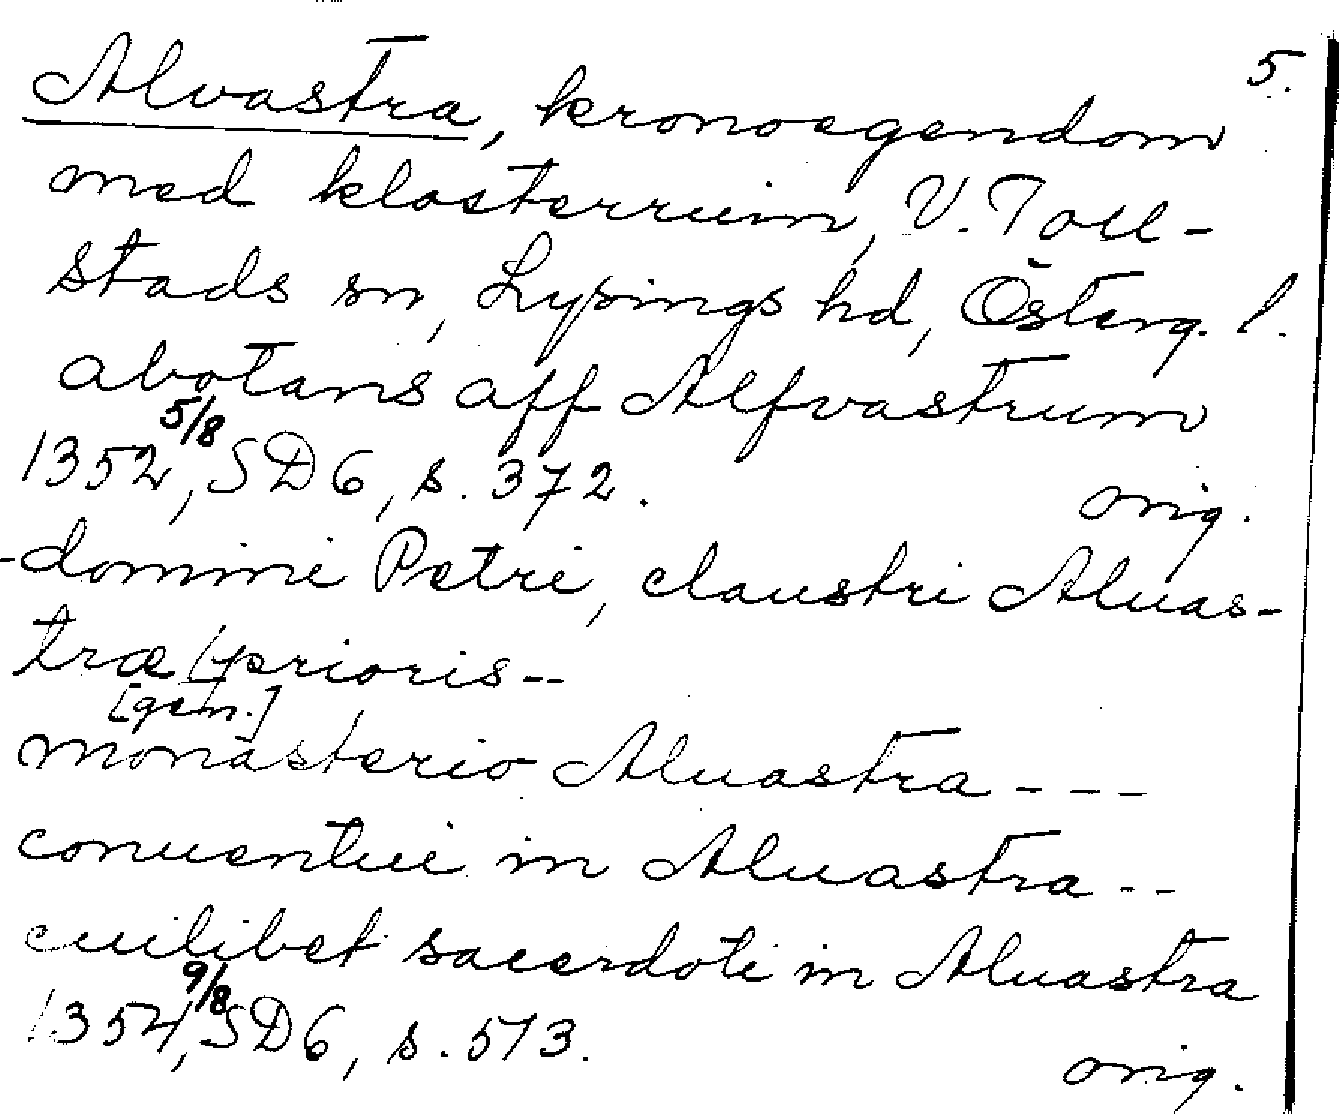 5.
Alvastra, kronoegendom
med klosterruin, V. Toll-
stads sn, Lysings hd, Österg. l.
abotans aff Alfvastrum
1352 5/8, SD 6, s. 372. orig.
-domini Petri, claustri Aluas-
træ [gen.] prioris--
monasterio Aluastra ---
conuentui in Aluastra --
cuilibet sacerdoti in Aluastra
1354 9/8, SD 6, s. 513. orig.